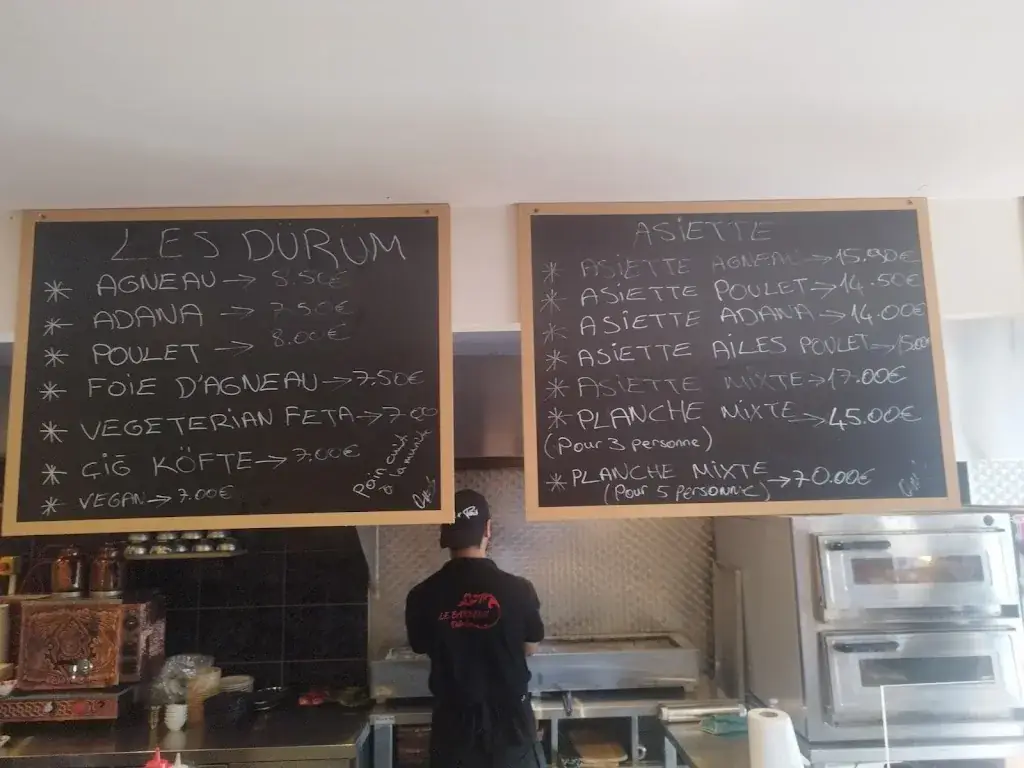 LES DÜRÜM
* AGNEAU → 8.50€
* ADANA → 7.50€
* POULET → 8.00€
* FOIE D'AGNEAU → 7.50€
* VEGETERIAN FETA → 7.00
* ÇİĞ KÖFTE → 7.00€
* VEGAN → 7.00€
Pain cuit
à la minute
ASİETTE
* ASİETTE AGNEAU → 15.90€
* ASİETTE POULET → 14.50€
* ASİETTE ADANA → 14.00€
* ASİETTE AİLES POULET → 15.00€
* ASİETTE MİXTE → 17.00€
* PLANCHE MİXTE → 45.00€
(Pour 3 personne)
* PLANCHE MİXTE → 70.00€
(Pour 5 Personne)